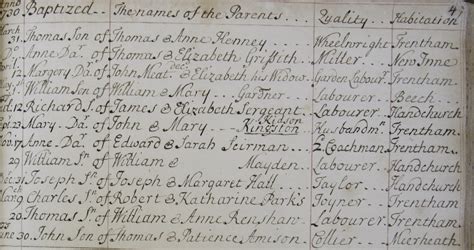 30 Baptized. The names of the Parents. Quality. Habitation 4
31 Thomas Son of Thomas & Anne Henney. Wheelwright Trentham.
Anne Dar. of Thomas & Elizabeth Griffith. Miller. New Inne
12 Margery Dar. of John & Elizabeth his Widow. Garden Labour. Trentham.
William Son of William & Mary Gardner. Labourer. Beech.
12 Richard S. of James & Elizabeth Sergeant. Labourer. Handchurch
23 Mary Dar. of John & Mary Kingston Husbandm. Trentham.
17 Anne Dar. of Edward & Sarah 2. Coachman. Trentham.
29 William S. of William & Mayden. Labourer. Handchurch
21 Joseph S. of Joseph & Margaret Hall. Taylor. Handchurch
9 Charles S. of Robert & Katharine Parks Joyner. Trentham.
20 Thomas S. of William & Anne Renshaw. Labourer Trentham.
30 John Son of Thomas & Patience Amison. Collier